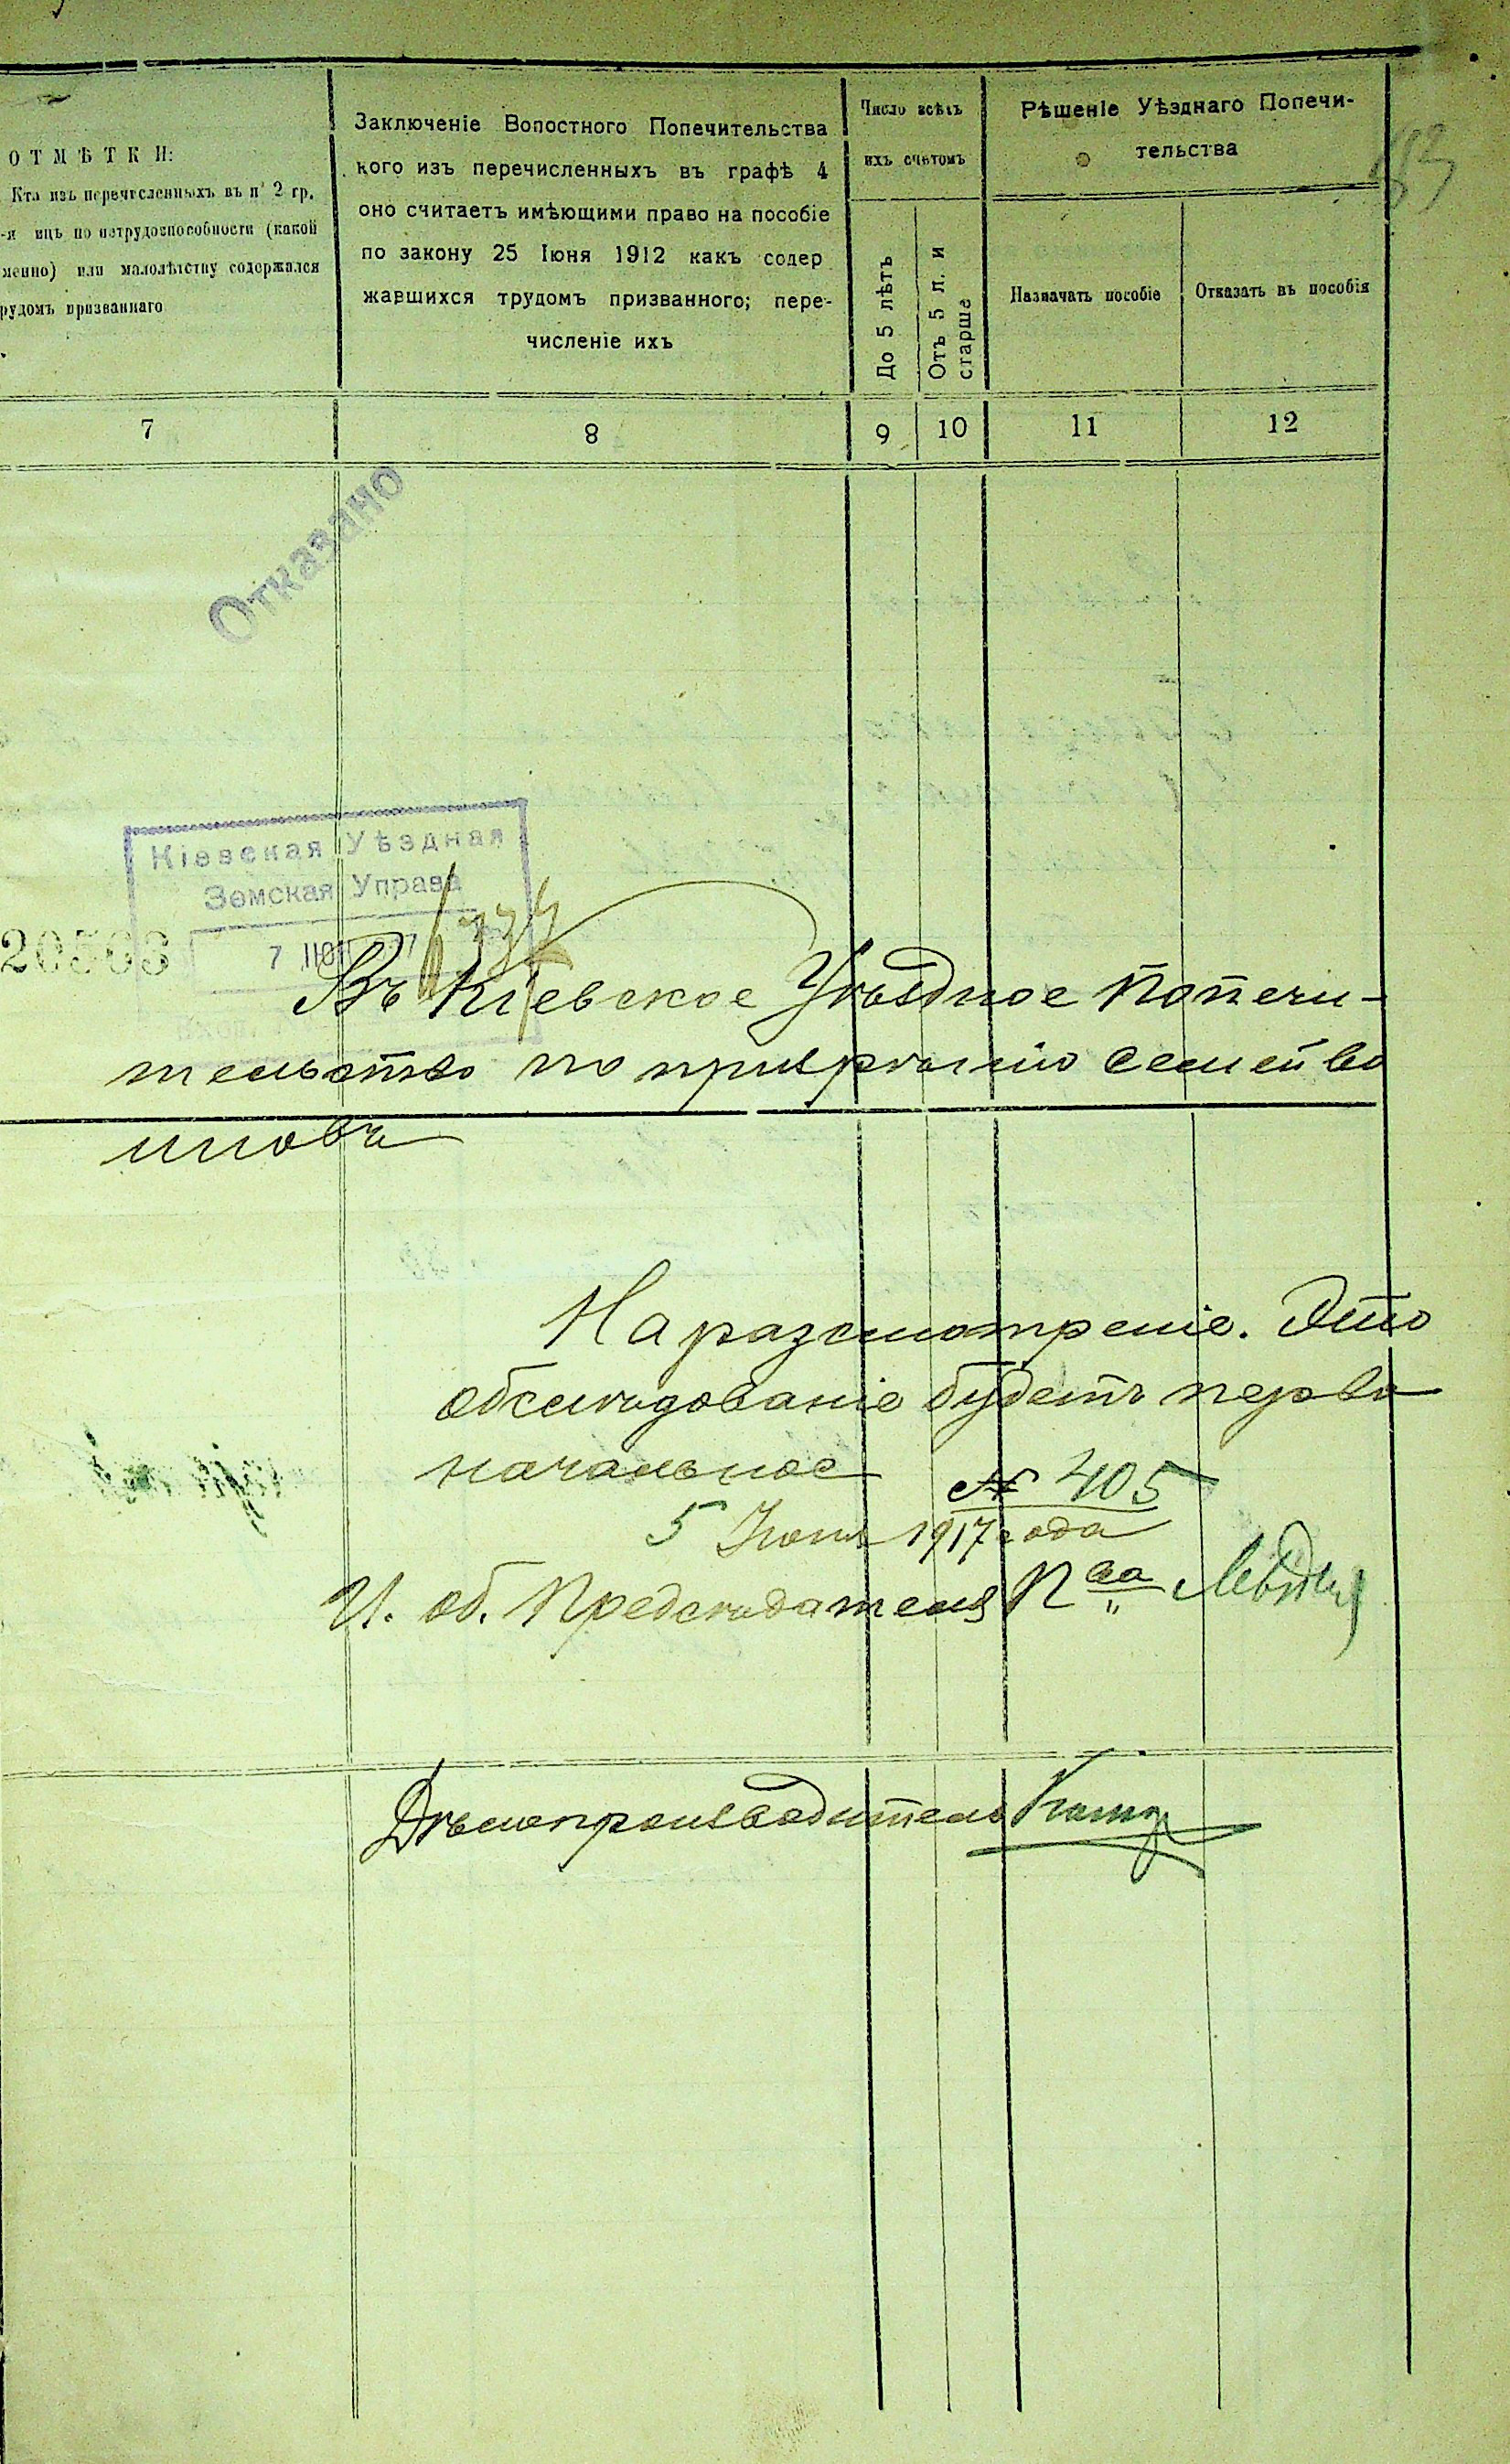 ОТМѢТКИ:
Кто изъ перечисленныхъ въ п 2 гр.
-я ицъ по нетрудоспособности (какой
менно) или малолѣтству содержался
рудомъ призваннаго
Заключеніе Волостного Попечительства
кого изъ перечисленныхъ въ графѣ 4
оно считаетъ имѣющими право на пособіе
по закону 25 Іюня 1912 какъ содер
жавшихся трудомъ призванного; пере-
численіе ихъ
Число всѣхъ
ихъ счетомъ
До 5 лѣтъ
Отъ 5 л. и
старше
Рѣшеніе Уѣзднаго Попечи-
тельства
Назначать пособіе
Отказать въ пособія
7 8 9 10 11 12
Отказано
Кіевская Уѣздная
Земская Управа
20503
7 ІЮН
Въ Кіевское Уѣздное Попечи-
тельство по призрѣнію семей во
иновъ
На разсмотреніе. Это
обслѣдованіе будетъ перво
начальное
№ 405
5 Іюня 1917 года
И. об. Предсѣдателя П ва
Дѣлопроизводитель